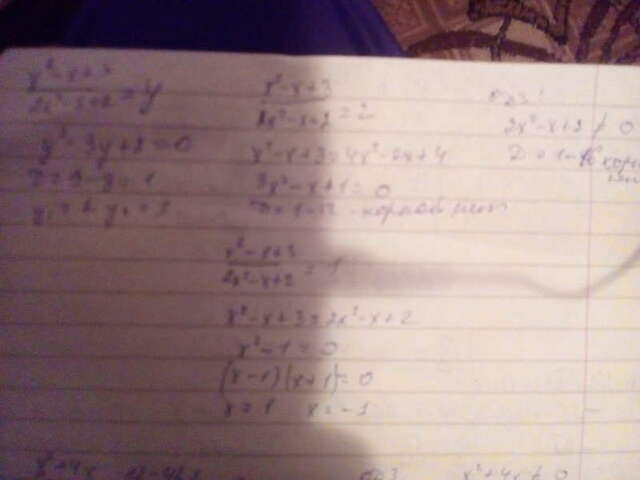 x² - x + 3 / 2x² - x + 2 = y
y² - 3y + 2 = 0
D = 9 - 8 = 1
y₁ = 2 y₂ = 1
x² - x + 3 / 2x² - x + 2 = 2
x² - x + 3 = 4x² - 2x + 4
3x² - x + 1 = 0
D = 1 - 12 корней нет
ОДЗ:
2x² - x + 2 ≠ 0
D = 1 - 16
x² - x + 3 / 2x² - x + 2 = 1
x² - x + 3 = 2x² - x + 2
x² - 1 = 0
(x - 1)(x + 1) = 0
x = 1 x = -1
x² + 4x
ОДЗ x² + 4x ≠ 0